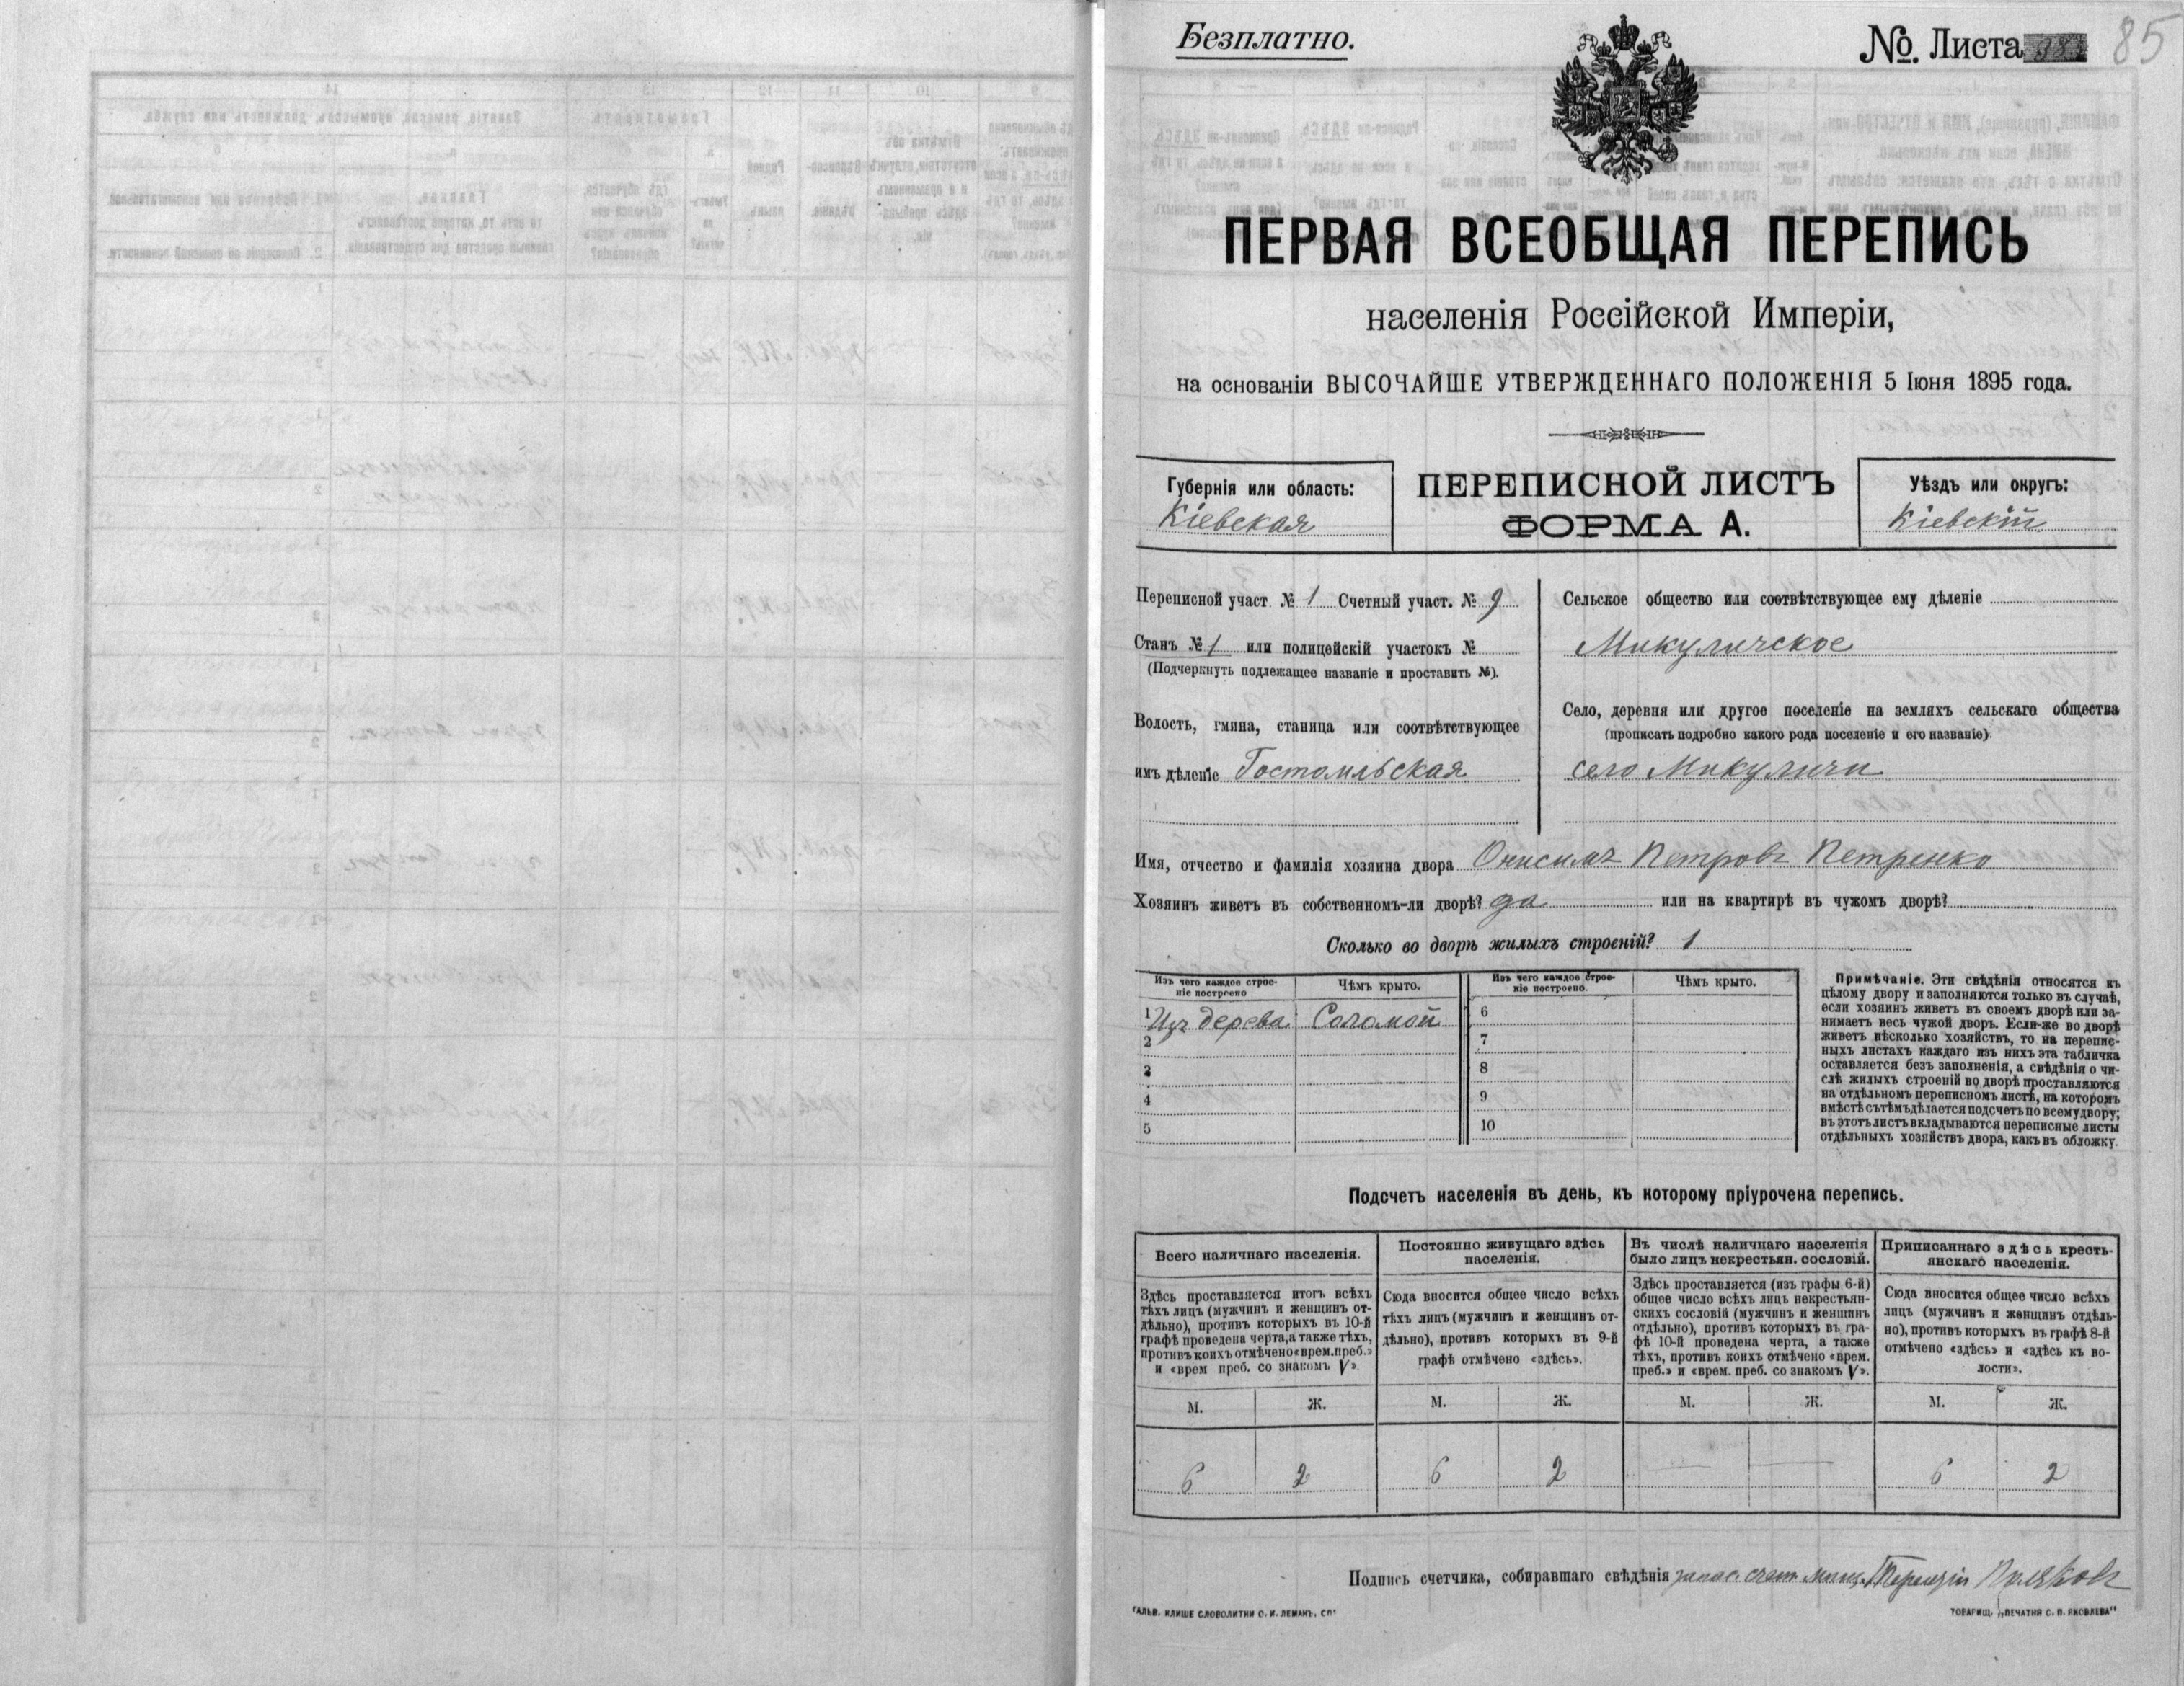 Безплатно.
№. Листа 38
85
ПЕРВАЯ ВСЕОБЩАЯ ПЕРЕПИСЬ
населенія Россійской Имперіи,
на основаніи ВЫСОЧАЙШЕ УТВЕРЖДЕННАГО ПОЛОЖЕНІЯ 5 Іюня 1895 года.
Губернія или область:
Кіевская
ПЕРЕПИСНОЙ ЛИСТЪ
ФОРМА А.
Уѣздъ или округъ:
Кіевскій
Переписной участ. № 1 Счетный участ. № 9
Станъ № 1 или полицейскій участокъ №
(Подчеркнуть подлежащее названіе и проставить №).
Волость, гмина, станица или соотвѣтствующее
имъ дѣленіе Гостомльская
Сельское общество или соотвѣтствующее ему дѣленіе
Микуличское
Село, деревня или другое поселеніе на земляхъ сельскаго общества
(прописать подробно какого рода поселеніе и его названіе).
село Микуличи
Имя, отчество и фамилія хозяина двора Онисимъ Петровъ Петренко
Хозяинъ живетъ въ собственномъ-ли дворѣ? да или на квартирѣ въ чужомъ дворѣ?
Сколько во дворѣ жилыхъ строеній? 1
Изъ чего каждое строе-
ніе построено
Чѣмъ крыто.
Изъ чего каждое строе-
ніе построено.
Чѣмъ крыто.
1 Изъ дерева Соломой 6
2 7
3 8
4 9
5 10
Примѣчаніе. Эти свѣдѣнія относятся къ
цѣлому двору и заполняются только въ случаѣ,
если хозяинъ живетъ въ своемъ дворѣ или за-
нимаетъ весь чужой дворъ. Если-же во дворѣ
живетъ нѣсколько хозяйствъ, то на перепис-
ныхъ листахъ каждаго изъ нихъ эта табличка
оставляется безъ заполненія, а свѣдѣнія о чи-
слѣ жилыхъ строеній во дворѣ проставляются
на отдѣльномъ переписномъ листѣ, на которомъ
вмѣстѣ съ тѣмъ дѣлается подсчетъ по всему двору;
въ этотъ листъ вкладываются переписные листы
отдѣльныхъ хозяйствъ двора, какъ въ обложку.
Подсчетъ населенія въ день, къ которому пріурочена перепись.
Всего наличнаго населенія.
Здѣсь проставляется итогъ всѣхъ
тѣхъ лицъ (мужчинъ и женщинъ от-
дѣльно), противъ которыхъ въ 10-й
графѣ проведена черта, а также тѣхъ,
противъ коихъ отмѣчено «врем. преб.»
и «врем преб. со знакомъ V».
М. Ж.
6 2
Постоянно живущаго здѣсь
населенія.
Сюда вносится общее число всѣхъ
тѣхъ лицъ (мужчинъ и женщинъ от-
дѣльно), противъ которыхъ въ 9-й
графѣ отмѣчено «здѣсь».
М. Ж.
6 2
Въ числѣ наличнаго населенія
было лицъ некрестьян. сословій.
Здѣсь проставляется (изъ графы 6-й)
общее число всѣхъ лицъ некрестьян-
скихъ сословій (мужчинъ и женщинъ
отдѣльно), противъ которыхъ въ гра-
фѣ 10-й проведена черта, а также
тѣхъ, противъ коихъ отмѣчено «врем.
преб.» и «врем. преб. со знакомъ V».
М. Ж.
— —
Приписаннаго здѣсь кресть-
янскаго населенія.
Сюда вносится общее число всѣхъ
лицъ (мужчинъ и женщинъ отдѣль-
но), противъ которыхъ въ графѣ 8-й
отмѣчено «здѣсь» и «здѣсь къ во-
лости».
М. Ж.
6 2
Подпись счетчика, собиравшаго свѣдѣнія запас. счет. Терентій Поляковъ
ГАЛЬВ. КЛИШЕ СЛОВОЛИТНИ О. И. ЛЕМАНЪ, СПБ
ТОВАРИЩ. „ПЕЧАТНЯ С. П. ЯКОВЛЕВА"